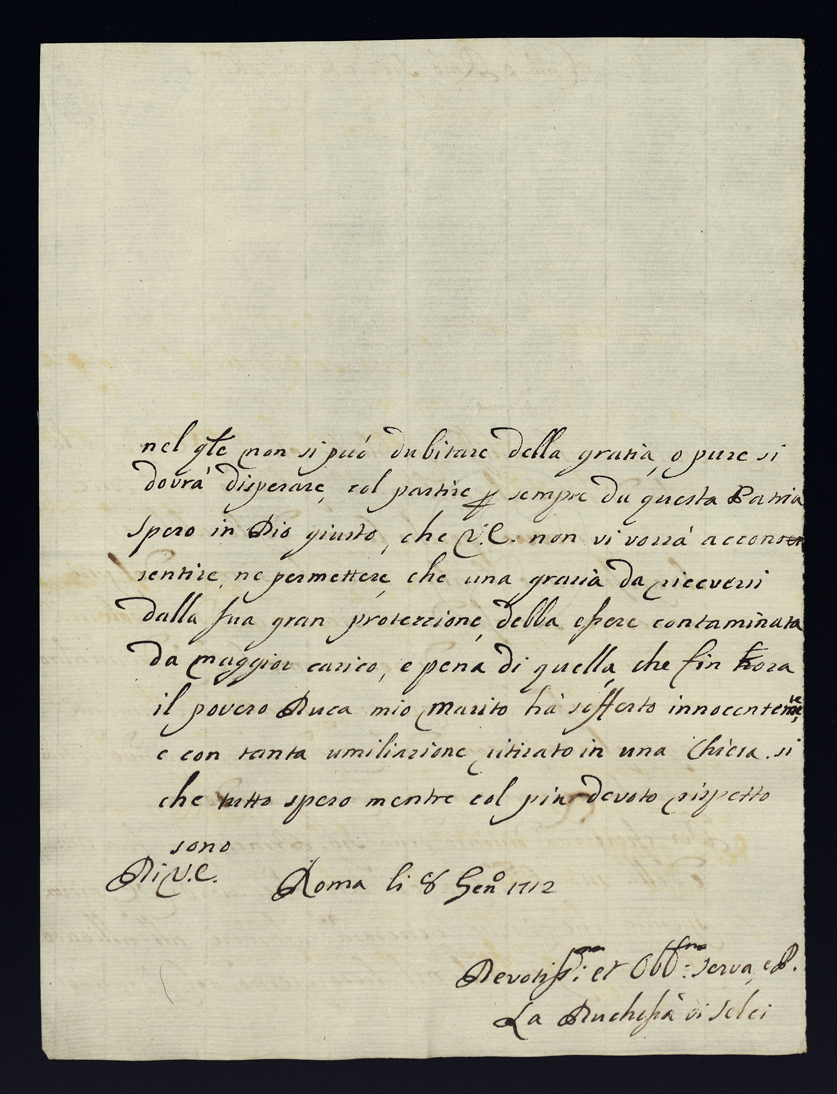 nel qle non si può dubitare della gratia, o pure si
dovrà disperare, col partire p sempre da questa Patria
spero in Dio giusto, che V.E. non vi vorrà acconsen
sentire, ne permettere, che una grazia da riceversi
dalla sua gran protezzione, debba essere contaminata
da maggior carico, e pena di quella, che fin hora
il povero Duca mio marito hà sofferto innocentemte,
e con tanta umiliazione ritirato in una Chiesa. si
che tutto spero mentre col più devoto rispetto
sono
Di V.E. Roma li 8 Genº 1712
Devotissma: et Obbma: serva, e P.
La Duchessa di Selci